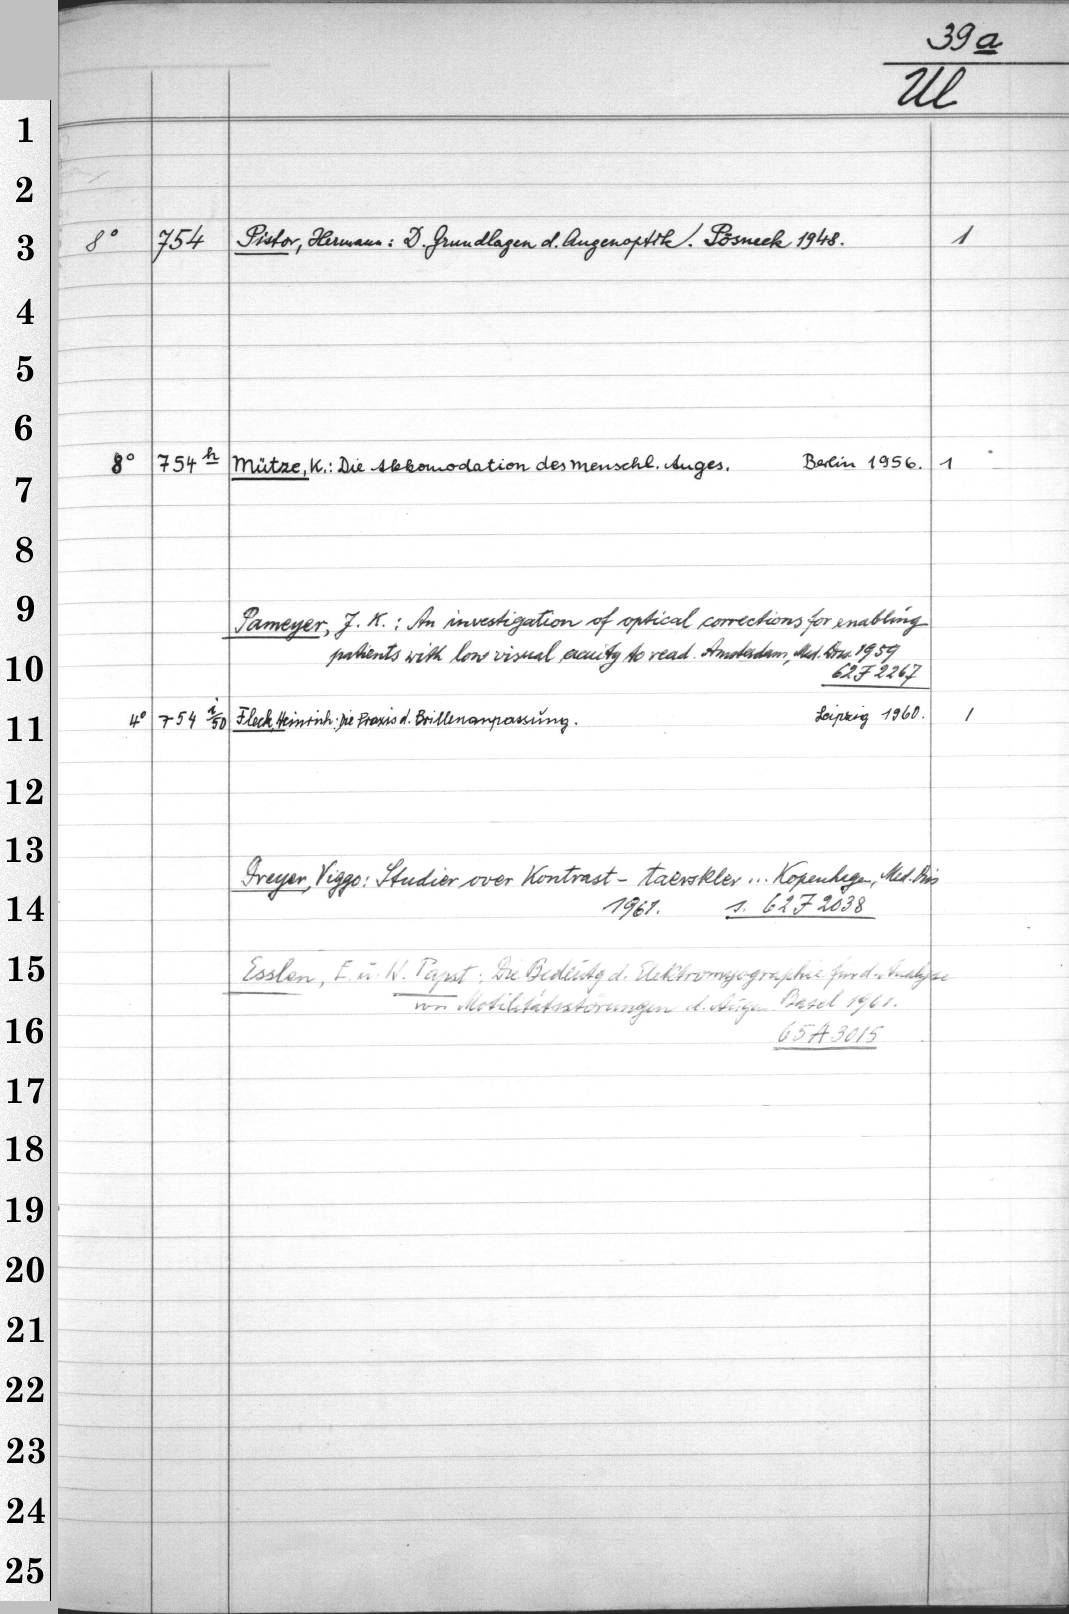 39a
Ul
1
2
3 8° 754 Pistor, Hermann: D. Grundlagen d. Augenoptik. Pösneck 1948. 1
4
5
6
8° 754 h Mütze, K.: Die Akkomodation des menschl. Auges. Berlin 1956. 1
7
8
9 Pameyer, J. K.: An investigation of optical corrections for enabling
10 patients with low visual acuity to read. Amsterdam, Med. Diss. 1959
62 F 2267
11 4° 754 i/50 Fleck, Heinrich: Die Praxis d. Brillenanpassung. Leipzig 1960. 1
12
13
Dreyer, Viggo: Studier over Kontrast-taerskler ... Kopenhagen, Med. Diss
14 1961. s. 62 F 2038
15 Esslen, E. u. W. Papst: Die Bedeutg d. Elektromyographie für d. Analyse
von Motilitätsstörungen d. Augen. Basel 1961.
16 65 A 3015
17
18
19
20
21
22
23
24
25